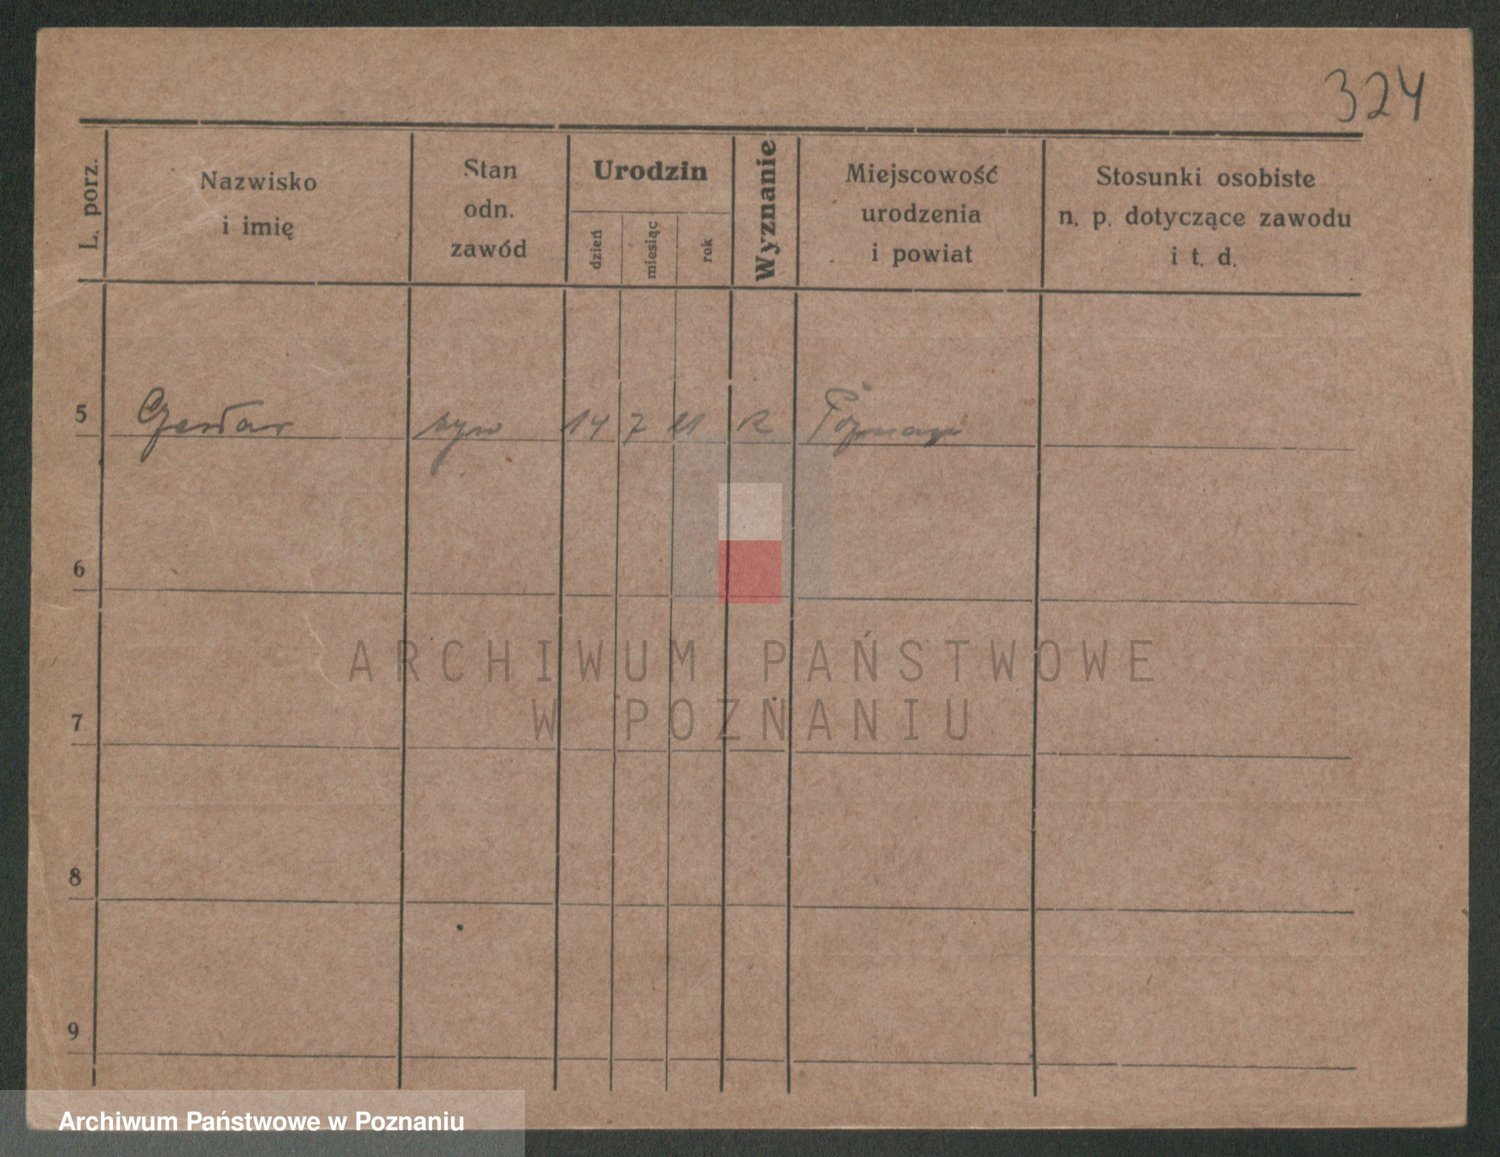 324
L. porz.
Nazwisko
i imię
Stan
odn.
zawód
Urodzin
dzień
miesiąc
rok
Wyznanie
Miejscowość
urodzenia
i powiat
Stosunki osobiste
n. p. dotyczące zawodu
i t. d.
5 syn 14 7 11 R Poznań
6
7
8
9
ARCHIWUM PAŃSTWOWE
W POZNANIU
Archiwum Państwowe w Poznaniu